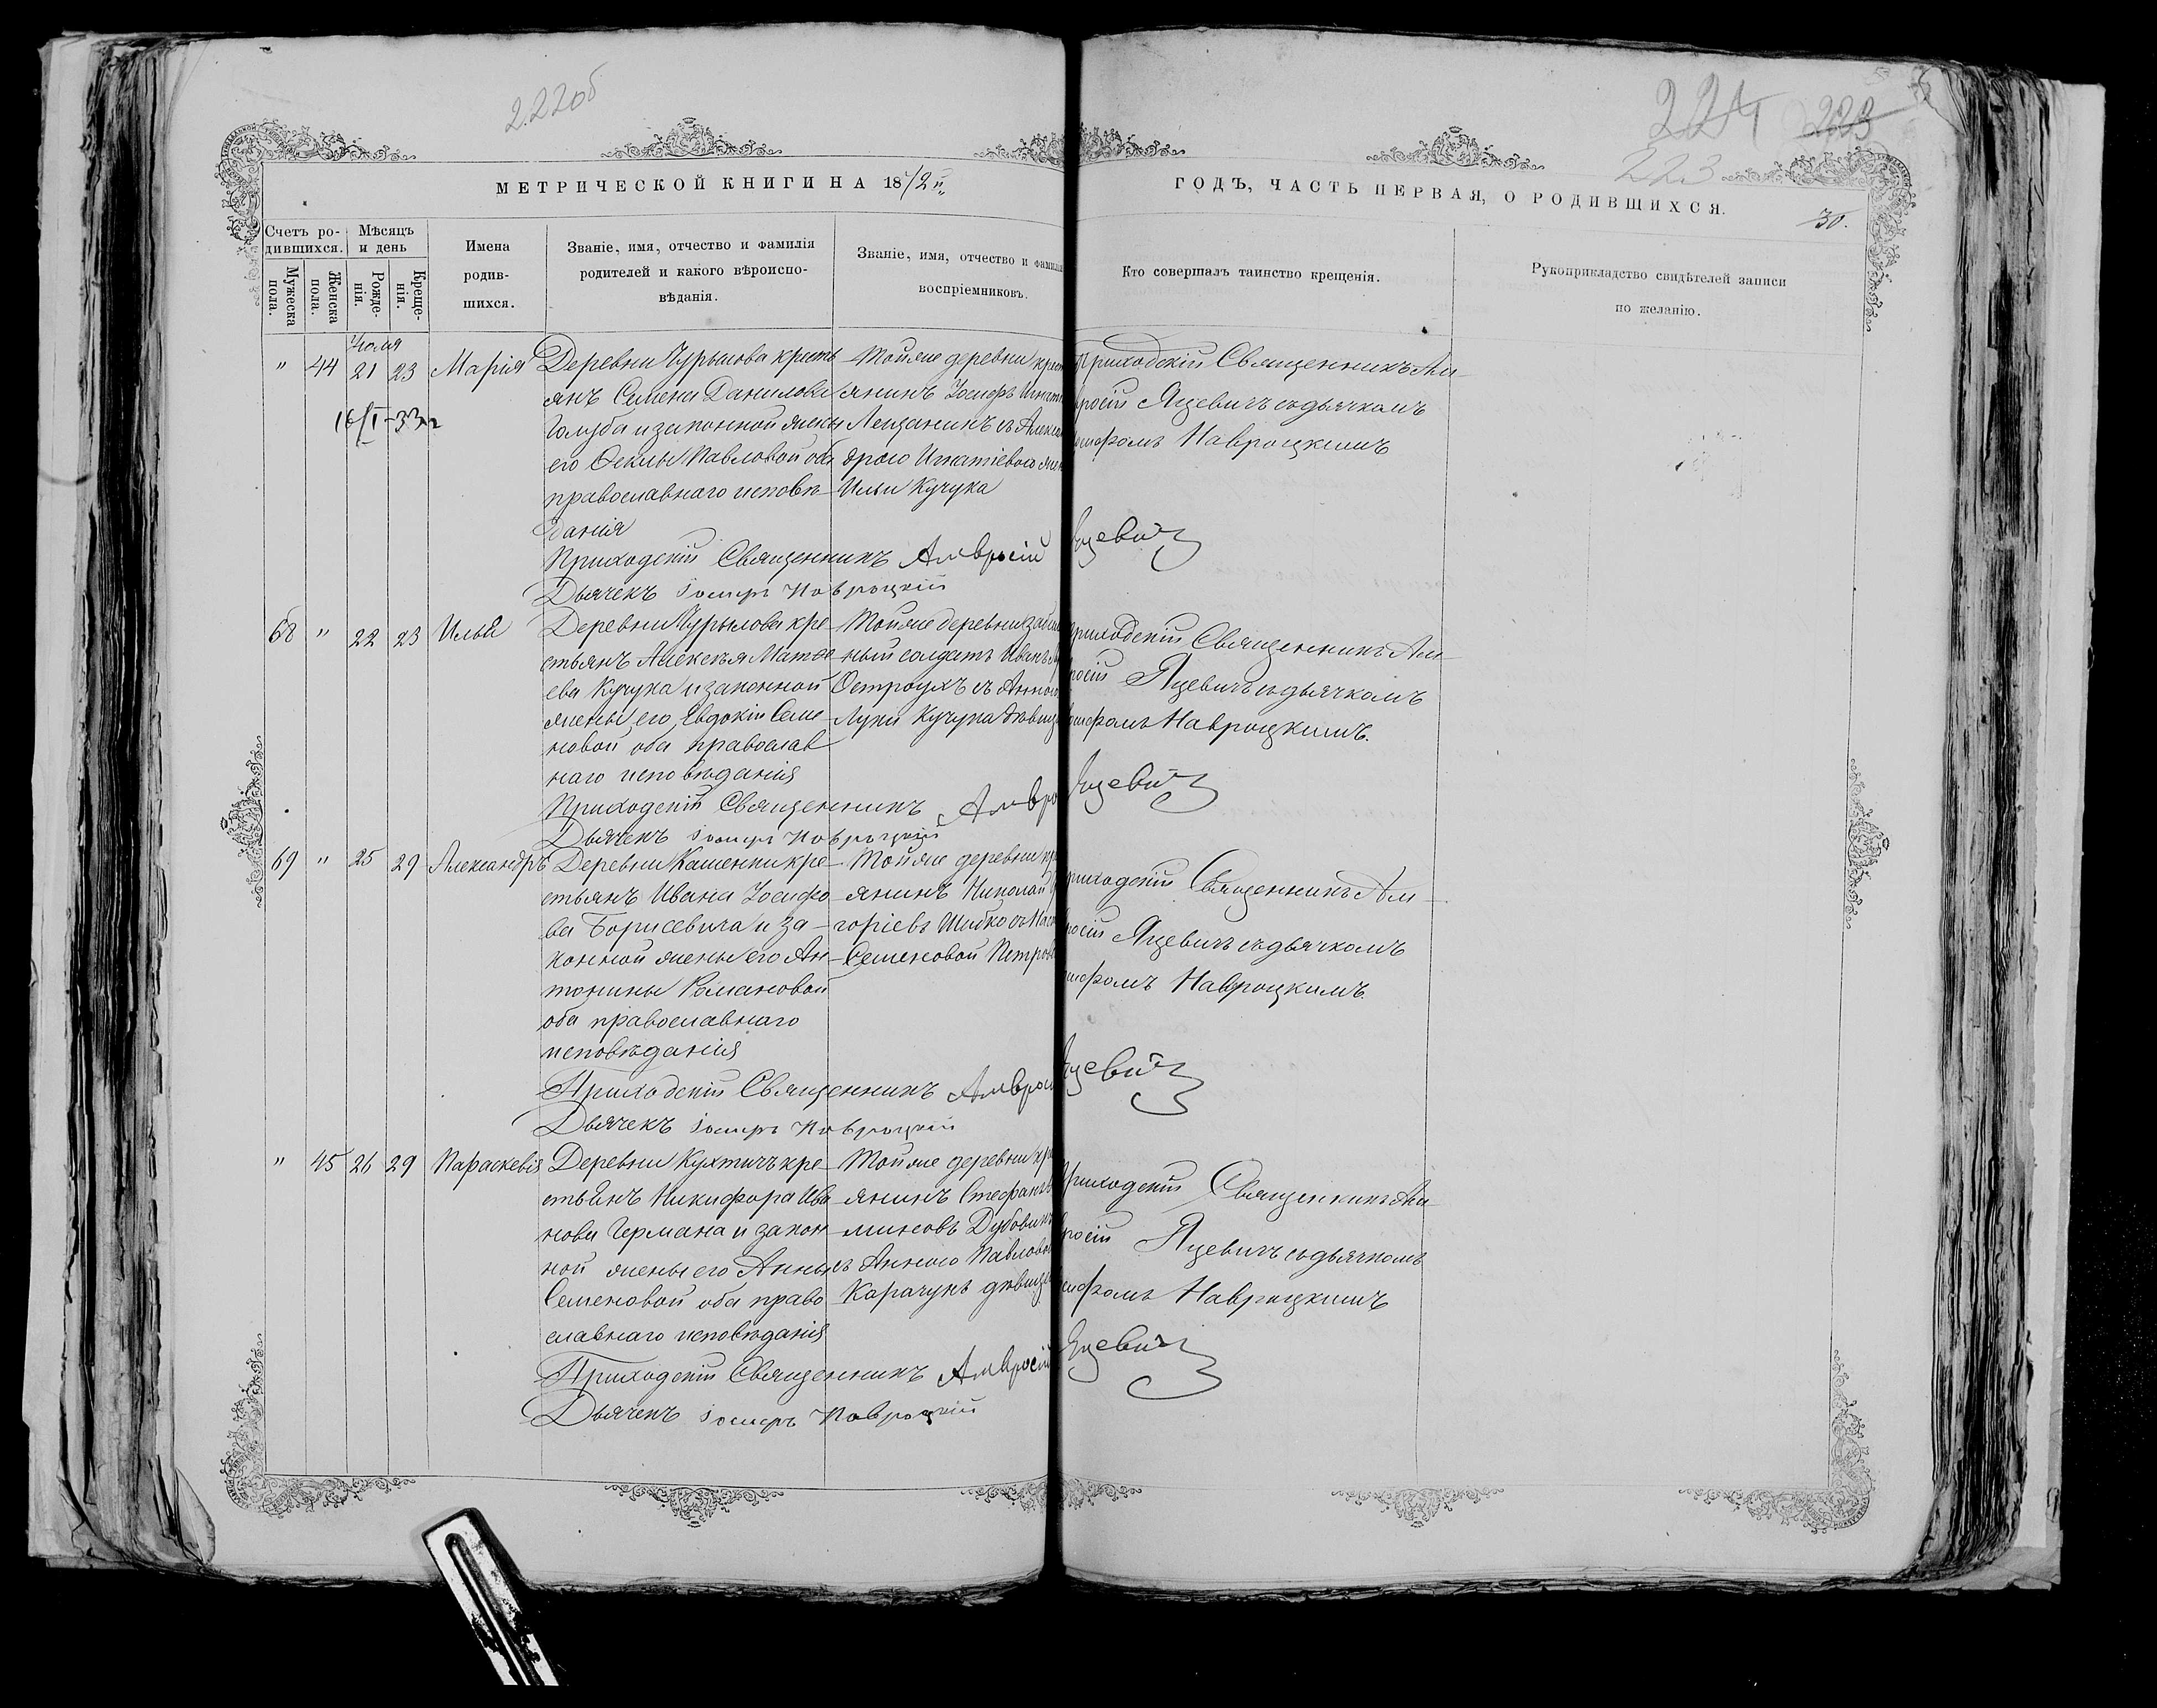 222об
224 223
223
МЕТРИЧЕСКОЙ КНИГИ НА 18
ГОДЪ, ЧАСТЬ ПЕРВАЯ, О РОДИВШИХСЯ.
30.
Счетъ ро-
дившихся.
Мѣсяцъ
и день
Мужеска
пола.
Женска
пола.
Рожде-
нія.
Креще-
нія.
Имена
родив-
шихся.
Званіе, имя, отчество и фамилія
родителей и какого вѣроиспо-
вѣданія.
Званіе, имя, отчество и фамилія
воспріемниковъ.
Кто совершалъ таинство крещенія.
Рукоприкладство свидѣтелей записи
по желанію.
" 44 21 23 Марія
Деревни Чурылова кресть
янъ Семена Данилова
Голуба и законной жены
его Ѳеклы Павловой оба
православнаго исповѣ-
данія
Тойже деревни крест
янинъ Іосифъ Игнат
Лещаникъ съ Алексан
дрою Игнатіевою жен
Ильи Кучука
Приходскій Священникъ Ам-
вросій Яцевичъ съ дьячкомъ
Іосифомъ Навроцкимъ
Приходскій Священникъ Амвросій Яцевичъ
Дьячекъ Іосифъ Навроцкій
68 " 22 23 Илья
Деревни Чурылова кре-
стьянъ Алексѣя Матѳе
ева Кучука и законной
жены его Евдокіи Семе
новой оба православ
наго исповѣданія
Тойже деревни
ный солдатъ Иванъ
Остроухъ съ Анною
Луки Кучука дѣвица
Приходскій Священникъ Ам-
вросій Яцевичъ съ дьячкомъ
Іосифомъ Навроцкимъ.
Приходскій Священникъ Амвро Яцевичъ
Дьячекъ Іосифъ Навроцкій
69 " 25 29 Александръ
Деревни Кашенки кре-
стьянъ Ивана Іосифо
ва Борисевича и за-
конной жены его Ан-
тонины Романовой
оба православнаго
исповѣданія
Тойже деревни кр
янинъ Николай
горіевъ Шибко съ Нас
Семеновой Петров
Приходскій Священникъ Ам-
вросій Яцевичъ съ дьячкомъ
Іосифомъ Навроцкимъ.
Приходскій Священникъ Амвроси Яцевичъ
Дьячекъ Іосифъ Навроцкій
" 45 26 29 Параскевія
Деревни Кухтичъ кре-
стьянъ Никифора Ива
нова Германа и закон
ной жены его Анны
Семеновой оба право
славнаго исповѣданія
Тойже деревни кр
янинъ Стефанъ
миновъ Дубовикъ
съ Анною Павлово
Карачунъ дѣвица
Приходскій Священникъ Ам-
вросій Яцевичъ съ дьячкомъ
Іосифомъ Навроцкимъ
Приходскій Священникъ Амвросій Яцевичъ
Дьячекъ Іосифъ Навроцкій